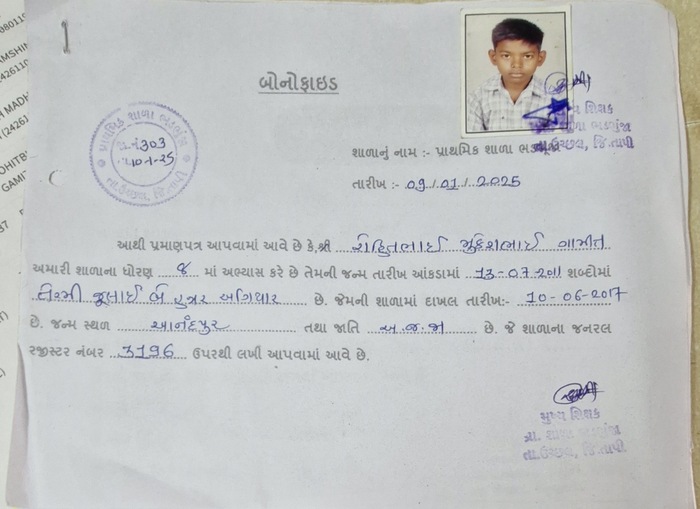 બોનોફાઇડ
પ્રાથમિક શાળા ભડભુંજા
જા.નં 303
તા. 10-1-25
તા.ઉચ્છલ, જિ.તાપી
મુખ્ય શિક્ષક
પ્રા. શાળા ભડભુંજા
તા.ઉચ્છલ, જિ.તાપી
શાળાનું નામ :- પ્રાથમિક શાળા
તારીખ :- 09/01/2025
આથી પ્રમાણપત્ર આપવામાં આવે છે કે,શ્રી રોહિતભાઈ મુકેશભાઈ ગામીત
અમારી શાળાના ધોરણ ૪ માં અભ્યાસ કરે છે તેમની જન્મ તારીખ આંકડામાં 13-07-2011 શબ્દોમાં
તેરમી જુલાઈ બે હજાર અગિયાર છે. જેમની શાળામાં દાખલ તારીખ:- 10-06-2017
છે. જન્મ સ્થળ આનંદપુર તથા જાતિ અ.જ.જા છે. જે શાળાના જનરલ
રજીસ્ટર નંબર 3196 ઉપરથી લખી આપવામાં આવે છે.
મુખ્ય શિક્ષક
પ્રા. શાળા ભડભુંજા
તા.ઉચ્છલ, જિ.તાપી